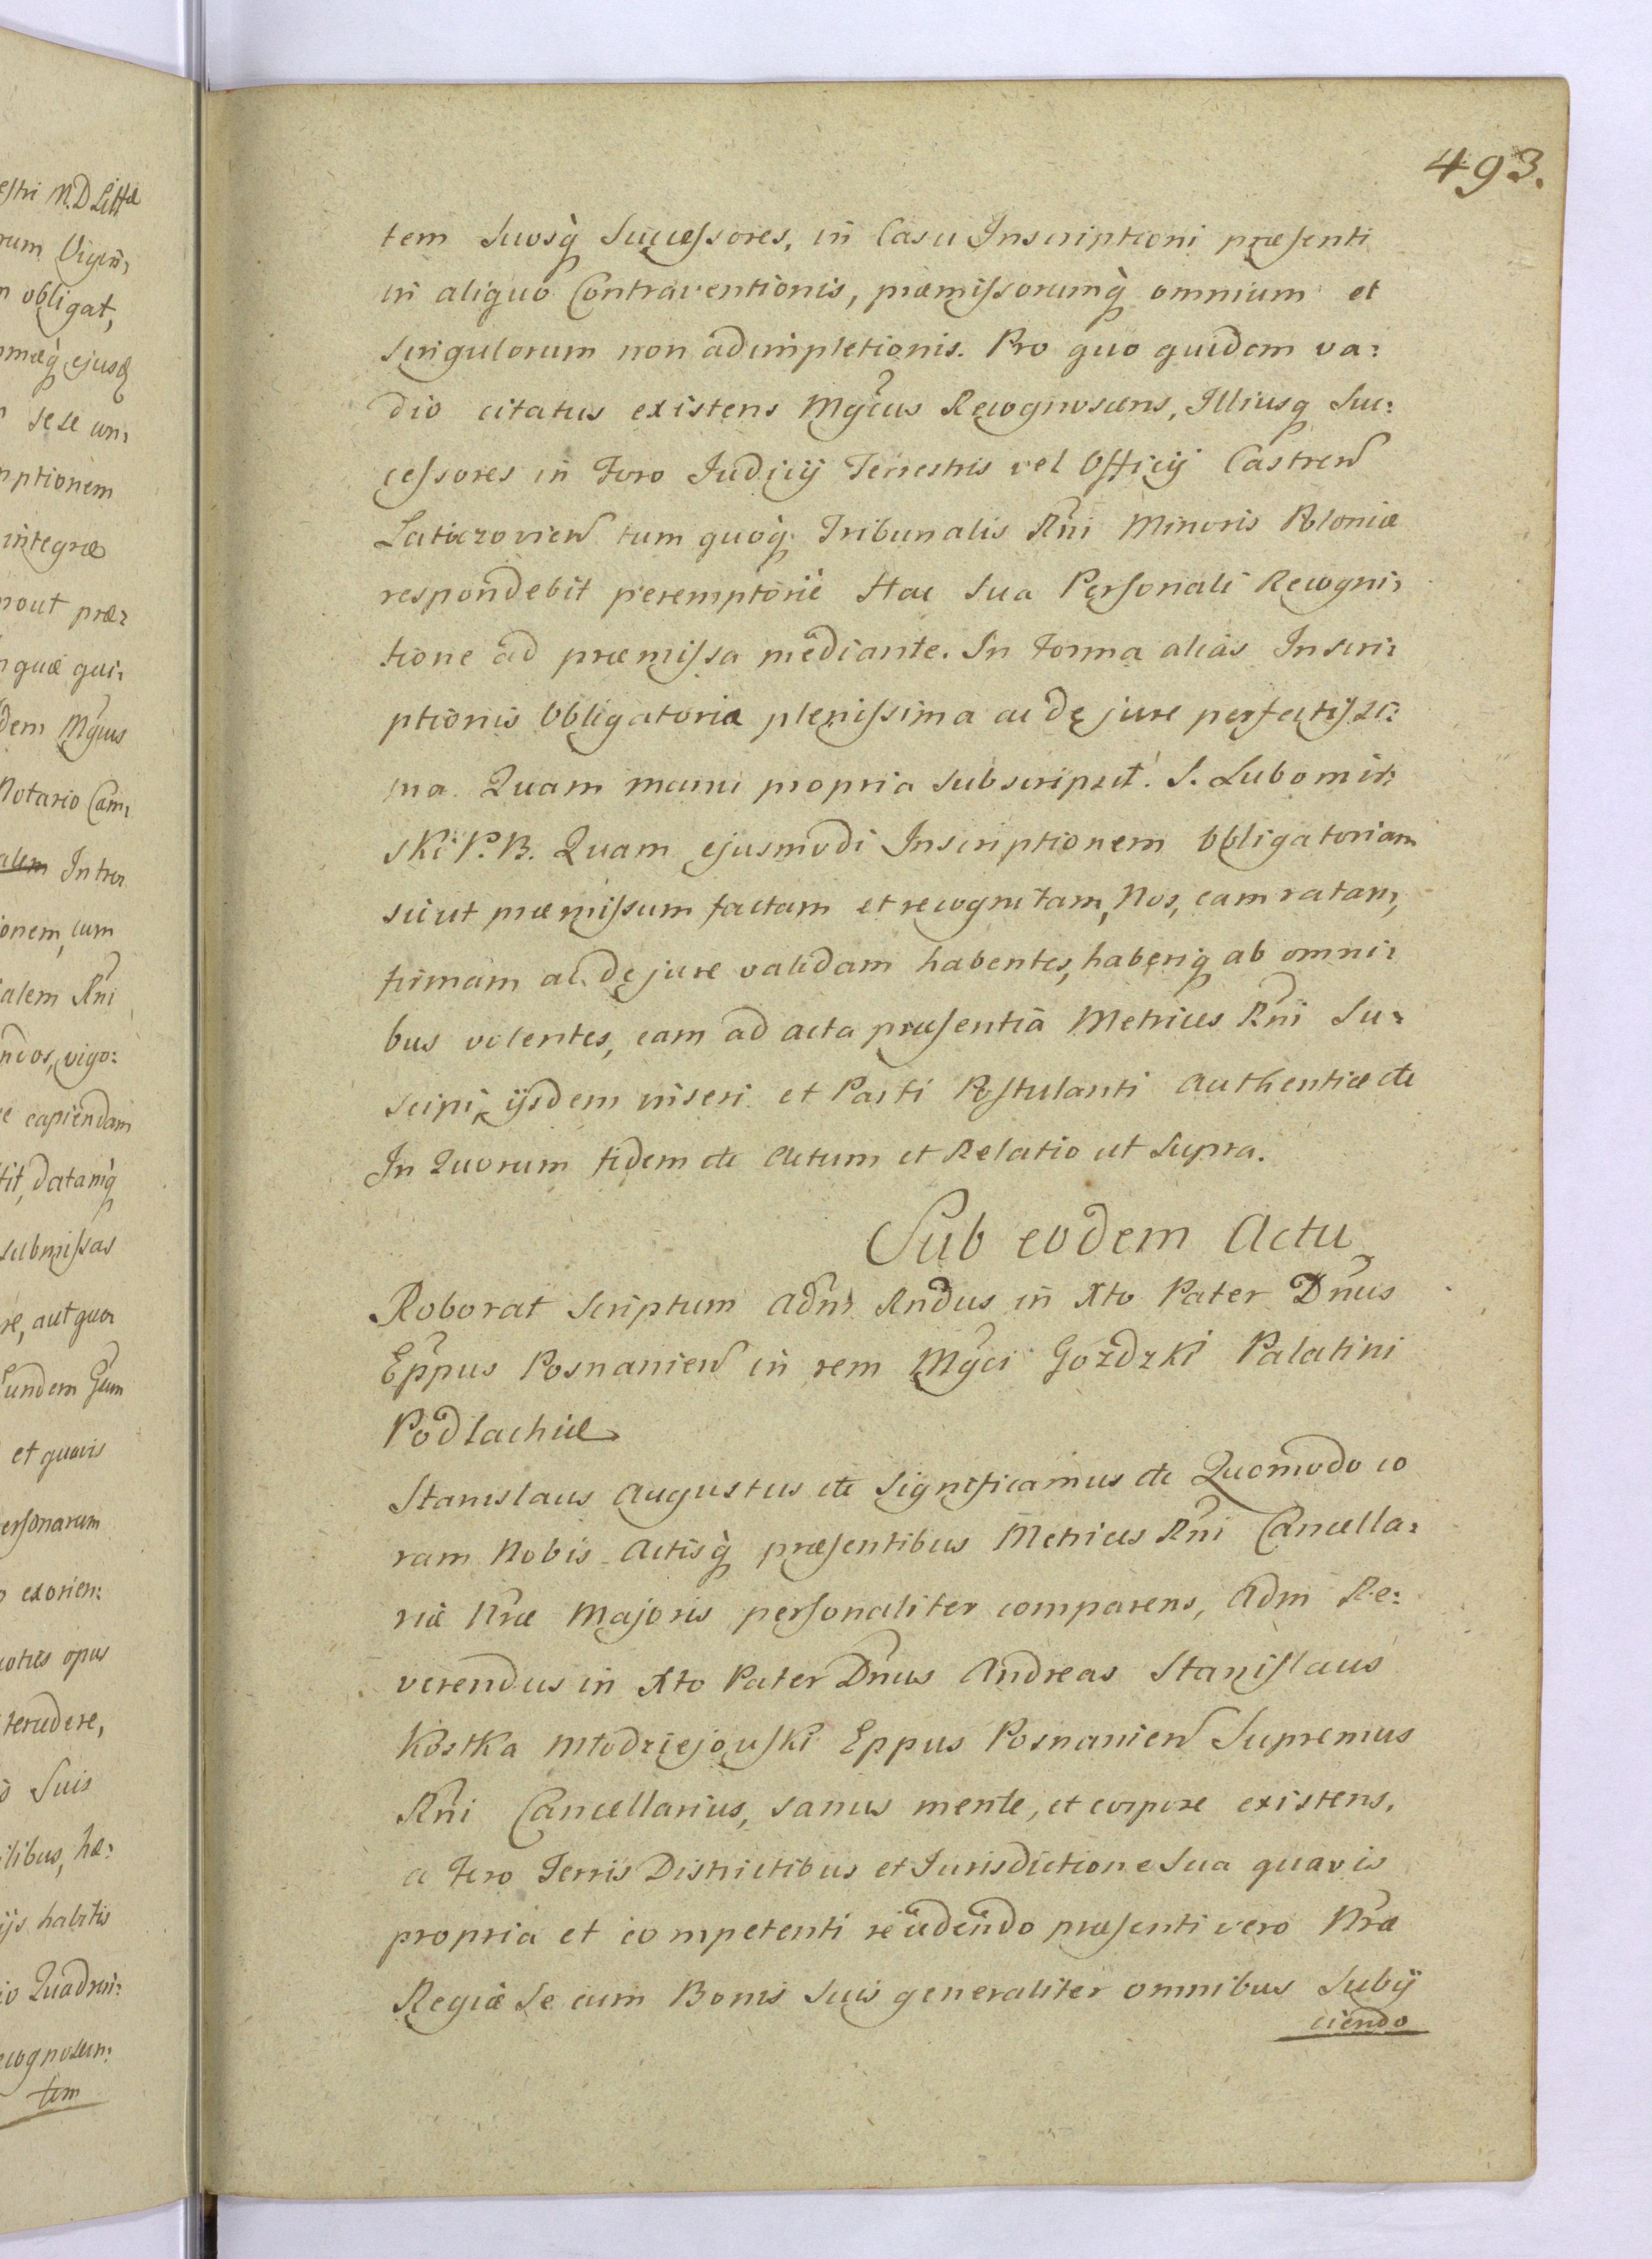 493.
tem Suosq̀ Successores, in Casu Inscriptioni præsenti
in aliquo Contraventionis, præmissorumq̀ omnium et
singulorum non adimpletionis. Pro quo quidem va:
dio citatus existens Mgcus Recognoscens, Illiusq Suc:
cessores in Foro Judicij Terrestris vel Officij Castren
Laticzovien tum quoq̀ Tribunalis Rni Minoris Poloniæ
respondebit peremptorie Hac Sua Personali Recogni:
tione ad præmissa mediante. In Forma alias Inscri:
ptionis Obligatoria plenissima ac de jure perfectissi:
ma. Quam manu propria subscripsit. S. Lubomir:
ski P. B. Quam ejusmodi Inscriptionem Obligatoriam
sicut præmissum factam et recognitam, Nos, eam ratam,
firmam ac de jure validam habentes, haberiq ab omni:
bus volentes, eam ad acta præsentia Metrices Rni Su:
scipi, ijsdem inseri et Parti Postulanti authentice etc
In Quorum fidem etc Actum et Relatio ut Supra.
Sub eodem Actu
Roborat Scriptum Adm Rndus in Xto Pater Dnus
Eppus Posnanien in rem Mgci Gozdzki Palatini
Podlachiæ
Stanislaus Augustus etc Significamus etc Quomodo co
ram Nobis Actisq̀ præsentibus Metrices Rni Cancella:
riæ Nræ Majoris personaliter comparens, Adm Re:
verendus in Xto Pater Dnus Andreas Stanislaus
Kostka Młodziejouski Eppus Posnanien Supremus
Rni Cancellarius, sanus mente, et corpore existens,
a Foro Terris Districtibus et Jurisdictione Sua quavis
propria et competenti recedendo præsenti vero Nræ
Regiæ Se cum Bonis Suis generaliter omnibus Subij
ciendo